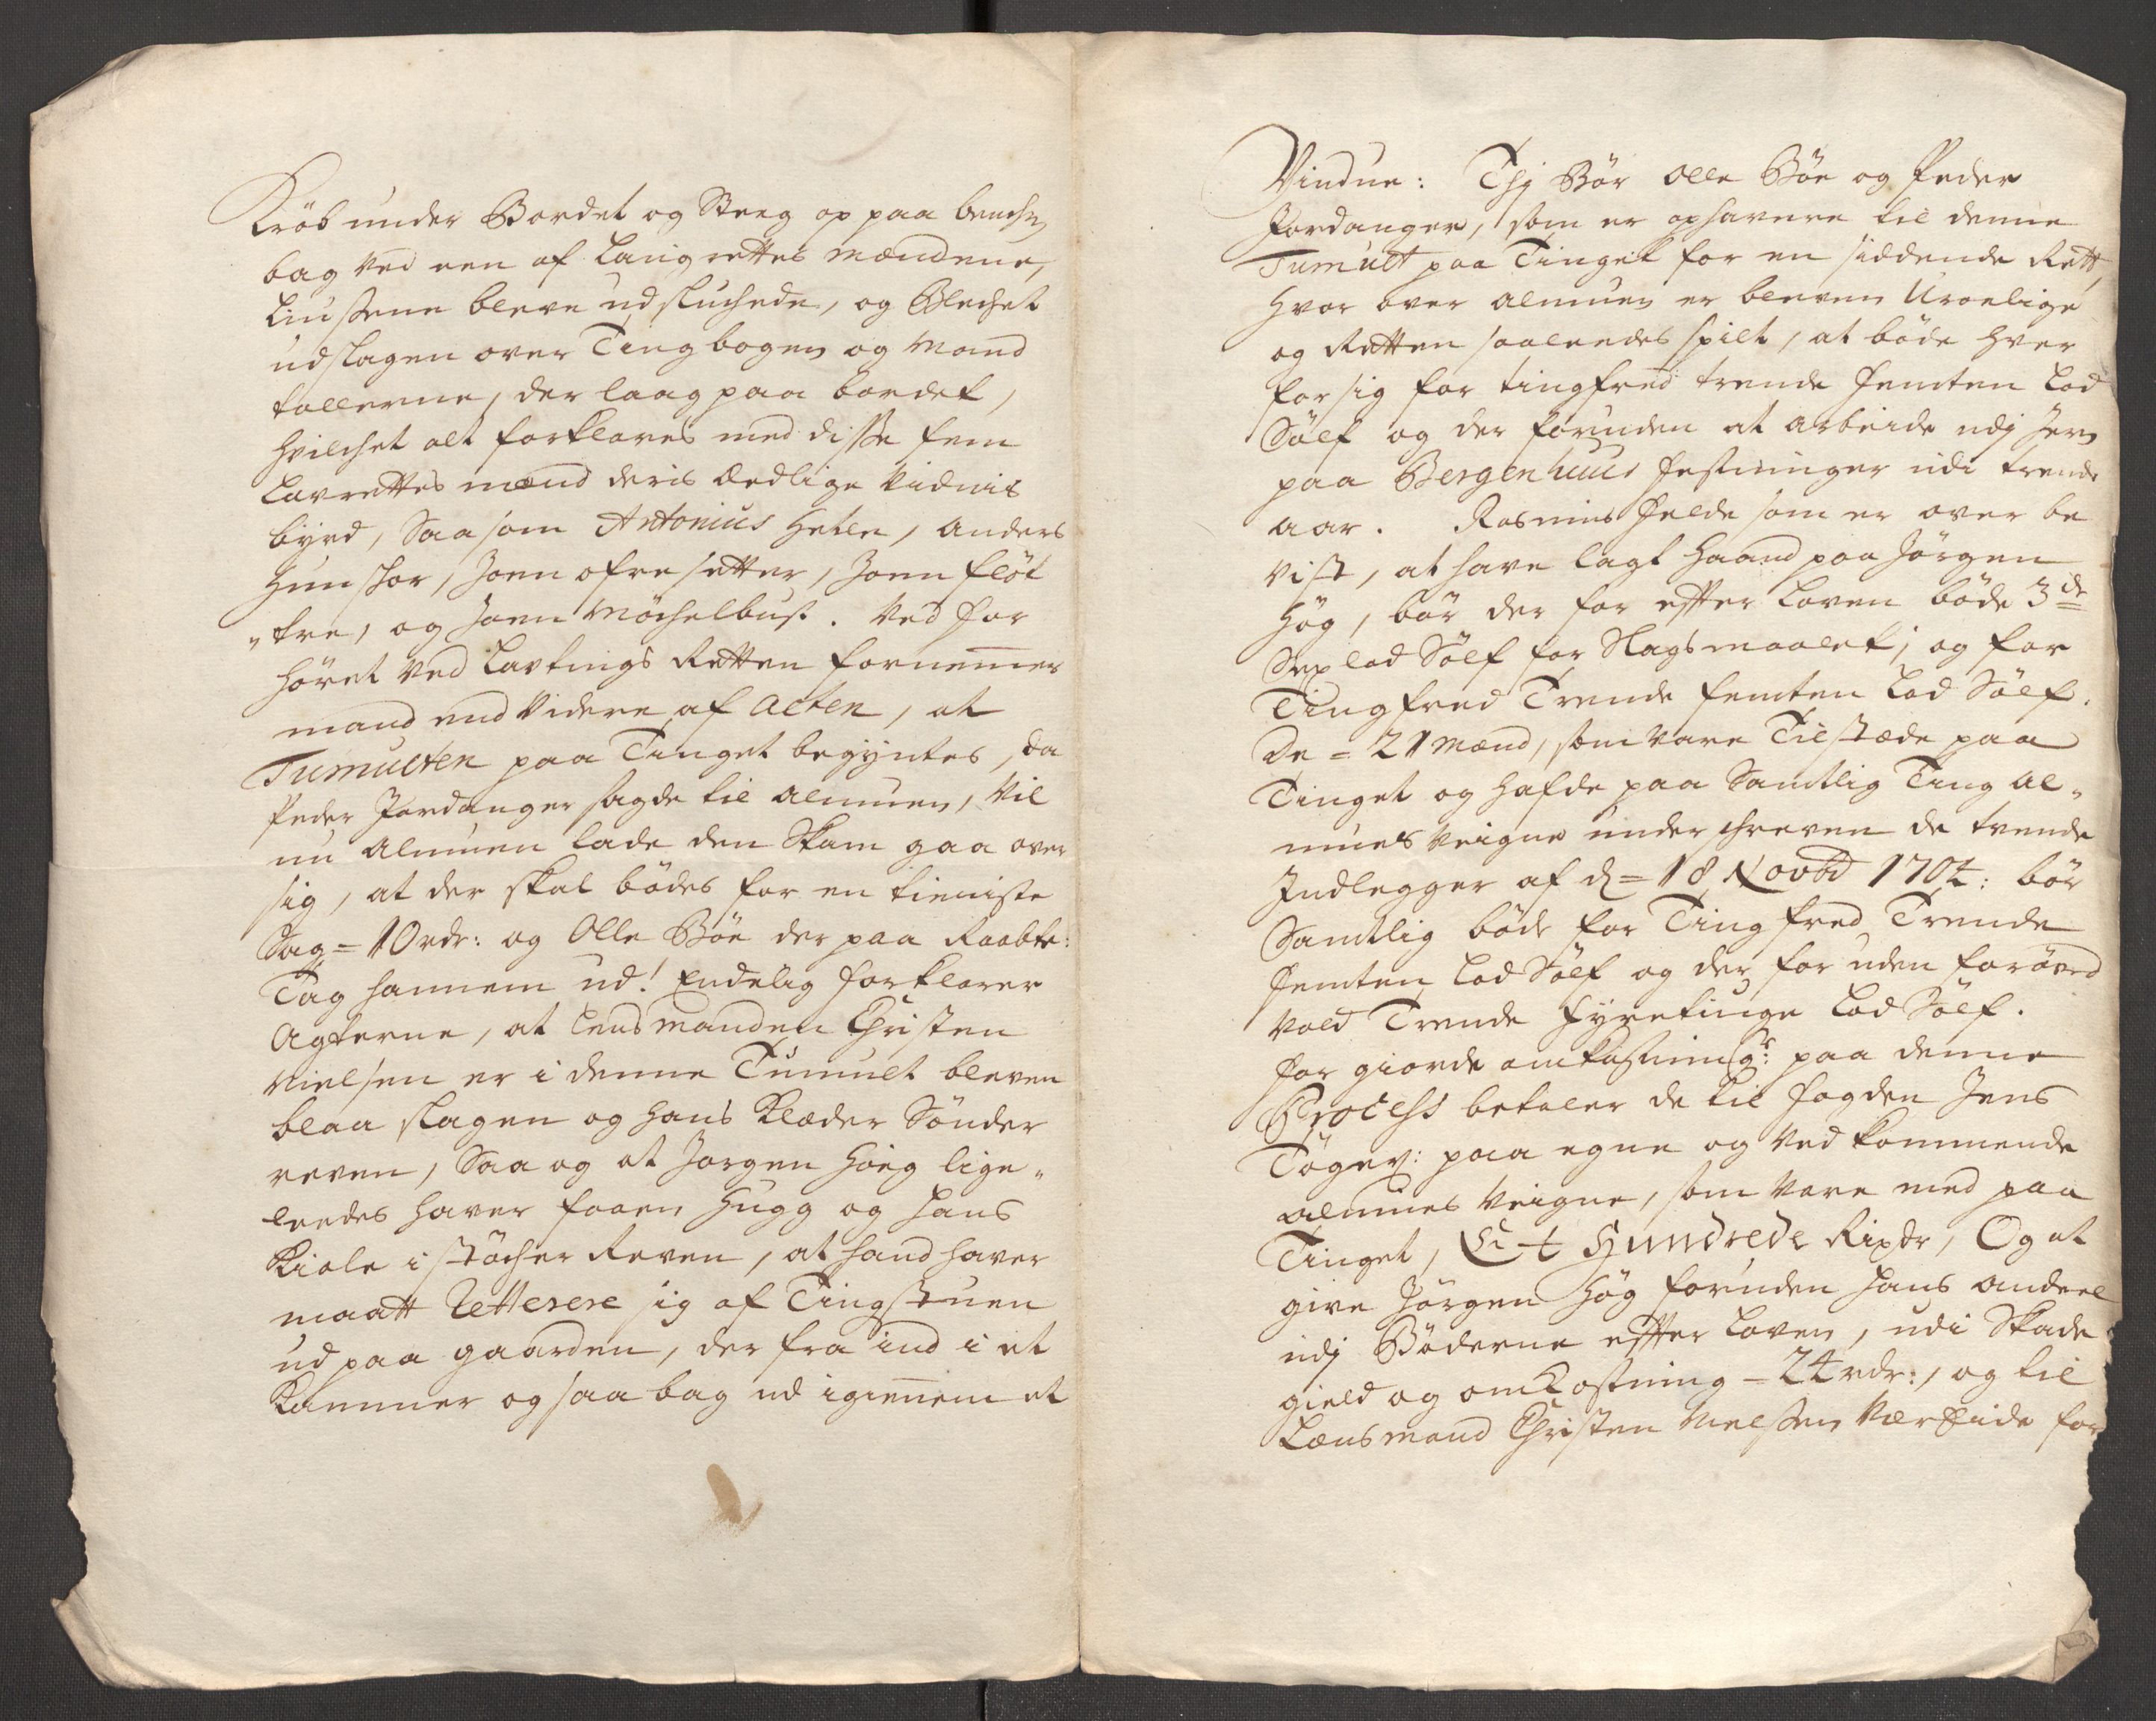 Krøb under Bordet og Steeg op paa benchen
bag ved een af Laugrettes mændene,
Liussene bleve udsluchede, og Blechet
udslagen over Tingbogen og Mand
tallerne, der laag paa bordet,
hvilchet alt forklares med disse fem
Lavrettes mænd deris Eedlige Vidnis
byrd, Saasom Antonius Hetle, Anders
Hunskor, Joen ofresetter, Joen Fløt
„tre, og Joen Møchelbust. Ved for
høret ved Lavtings Retten fornemmer
mand end Videre af Acten, at
Tumulten paa Tinget begyntes, da
Peder Jordanger sagde til Almuen, Vil
nu Almuen lade den Skam gaa over
sig, at der skal bødes for en tieniste
Sag = 10 rdr: og Olle Bøe der paa Raabte:
Tag hannem ud! Endelig forklarer
Agterne, at Lensmanden Christen
Nielsen er i denne Tumult bleven
blaa slagen og hans Klæder Sønder
reven, Saa og at Jørgen Høeg lige„
leedes haver faaen Hugg og hans
Kiole i støcher Reven, at hand haver
maatt Retterere sig af Tingstuen
ud paa gaarden, der fra ind i et
Kammer og saa bag ud igiennem et
Vindue: Thj Bør Olle Bøe og Peder
Jordanger, som er ophavere til denne
Tumult paa Tinget for en siddende Rett,
Hvor over almuen er bleven Uroelige
og Retten saaleedes spilt, at bøde hver
for sig for tingfred trende femten Lod
Sølf og der foruden at arbeide udj Jern
paa Bergenhuus festninger udi trende
aar. Rasmus Felde som er over be
vist, at have lagt haand paa Jørgen
Høg, bør der for efter Loven bøde 3de
Sex lod Sølf for Slagsmaalet; og for
Tingfred Trende femten Lod Sølf.
De = 21 Mænd, som vare Tilstæde paa
Tinget og hafde paa Samtlig Ting al„
mues Veigne underschreven de tvende
Indlegger af d = 18 Novbr 1704: bør
Samtlig bøde for Tingfred Trende
femten Lod Sølf og der for uden for
Vold Trende fyretiuge Lod Sølf.
for giorde omkostning: paa denne
Process betaler de til fogden Jens
paa egne og Vedkommende
almues Veigne, som Vare med paa
Tinget, Et Hundrede Rixdr, Og at
give Jørgen Høg foruden hans andeel
udj Bøderne efter Loven, udi Skade
gield og omkostning = 24 rdr:, og til
Lænsmand Christen Nielssen for